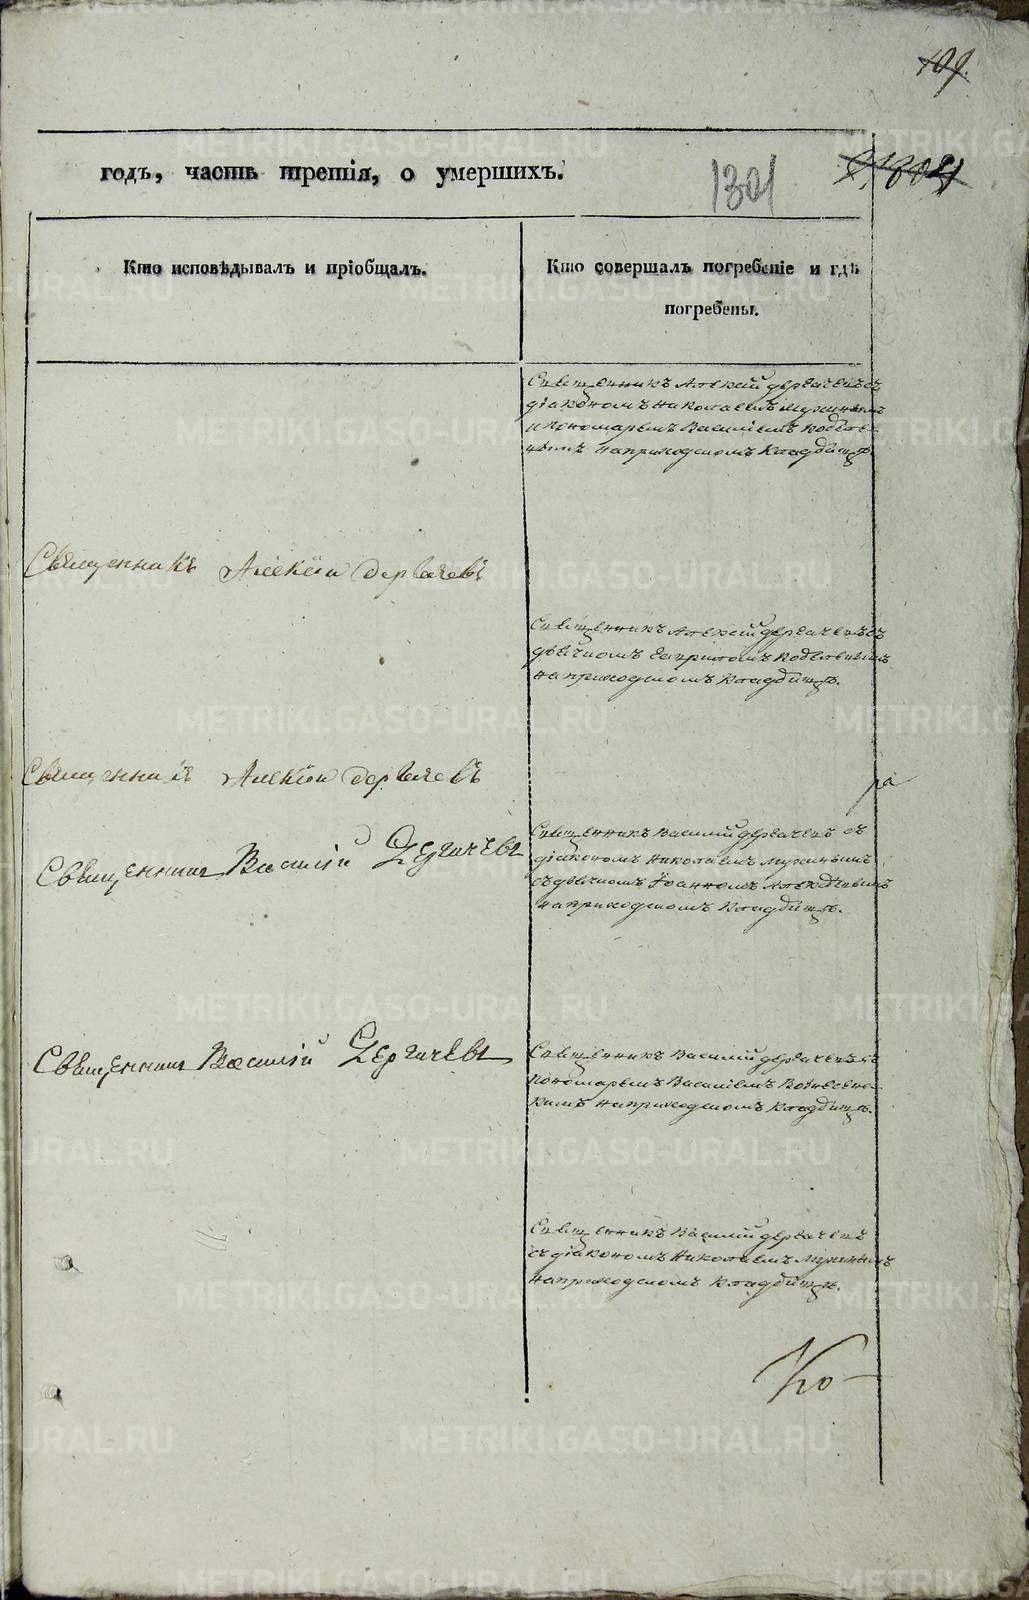 109.
годъ, часть третія, о умершихъ.
1301
Кто исповѣдывалъ и пріобщалъ.
Кто совершалъ погребеніе и гдѣ
погребены.
Священникъ Алексій Дергачевъ съ
діакономъ Николаемъ Мухинымъ
и пономаремъ Василіемъ
на приходскомъ кладбищѣ.
Священникъ Алексіи Дергачевъ
Священникъ Алексій Дергачевъ съ
дьячкомъ
на приходскомъ кладбищѣ.
Священникъ Алексіи Дергачевъ
ра
Священникъ Василій Дергачевъ
Священникъ Василій Дергачевъ съ
діакономъ Николаемъ Мухинымъ
съ дьячкомъ Іоанномъ
на приходскомъ кладбищѣ.
Священникъ Василій Дергачевъ
Священникъ Василій Дергачевъ съ
пономаремъ Василіемъ Вознесенс-
кимъ на приходскомъ кладбищѣ.
Священникъ Василій Дергачевъ
съ діакономъ Николаемъ Мухинымъ
на приходскомъ кладбищѣ.
Ко-
METRIKI.GASO-URAL.RU